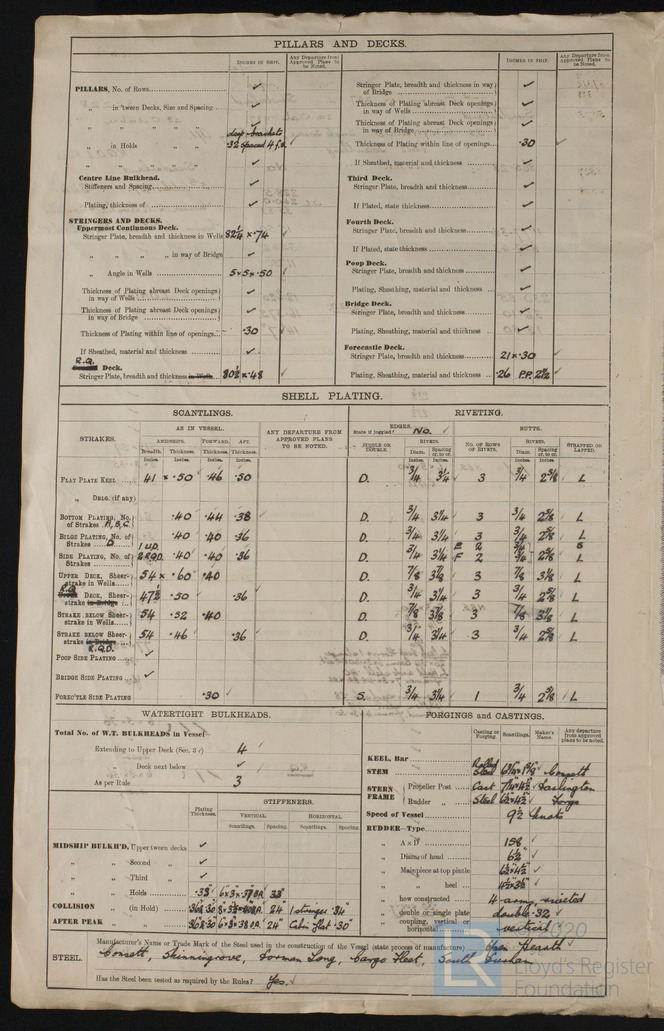 PILLARS AND DECKS.
INCHES IN SHIP.
Any Departure from Approved Plans to be Noted.
PILLARS, No. of Rows ✓
„ in 'tween Decks, Size and Spacing ✓
„ „ „ „ ✓
deep brackets
„ in Holds „ „ ·32 spaced 4 f.s.
„ „ „ „ ✓
Centre Line Bulkhead.
Stiffeners and Spacing ✓
Plating, thickness of ✓
STRINGERS AND DECKS.
Uppermost Continuous Deck.
Stringer Plate, breadth and thickness in Wells 82¼ × ·74
„ „ „ „ in way of Bridge ✓
„ Angle in Wells 5 × 5 × ·50
Thickness of Plating abreast Deck openings in way of Wells ✓
Thickness of Plating abreast Deck openings in way of Bridge ✓
Thickness of Plating within line of openings ·30
If Sheathed, material and thickness ✓
R.Q. Deck.
Stringer Plate, breadth and thickness in Wells 80½ × ·48
INCHES IN SHIP.
Any Departure from Approved Plans to be Noted.
Stringer Plate, breadth and thickness in way of Bridge ✓
Thickness of Plating abreast Deck openings in way of Wells ✓
Thickness of Plating abreast Deck openings in way of Bridge ✓
Thickness of Plating within line of openings ·30 ✓
If Sheathed, material and thickness ✓
Third Deck.
Stringer Plate, breadth and thickness ✓
If Plated, state thickness ✓
Fourth Deck.
Stringer Plate, breadth and thickness ✓
If Plated, state thickness ✓
Poop Deck.
Stringer Plate, breadth and thickness ✓
Plating, Sheathing, material and thickness ✓
Bridge Deck.
Stringer Plate, breadth and thickness ✓
Plating, Sheathing, material and thickness ✓
Forecastle Deck.
Stringer Plate, breadth and thickness 21 × ·30
Plating, Sheathing, material and thickness ·26 P.P. 2½
SHELL PLATING.
SCANTLINGS. RIVETING.
STRAKES.
AS IN VESSEL.
AMIDSHIPS. FORWARD. AFT.
Breadth. Thickness. Thickness. Thickness.
Inches. Inches. Inches. Inches.
ANY DEPARTURE FROM APPROVED PLANS TO BE NOTED.
EDGES.
State if joggled? No.
SINGLE OR DOUBLE.
RIVETS.
Diam. Spacing cr. to cr.
Inches. Inches.
BUTTS.
No. OF ROWS OF RIVETS.
RIVETS.
Diam. Spacing cr. to cr.
Inches. Inches.
STRAPPED OR LAPPED.
FLAT PLATE KEEL 41 × ·50 ·46 ·50 D. ¾ 3¼ 3 ¾ 2⅝ L
„ DBLG. (if any)
BOTTOM PLATING, No. of Strakes A, B, C. ·40 ·44 ·38 D. ¾ 3¼ 3 ¾ 2⅝ L
BILGE PLATING, No. of Strakes D ·40 ·40 ·36 D. ¾ 3¼ 3 ¾ 2⅝ L
SIDE PLATING, No. of Strakes 1 U.D. 2 R.Q.D. ·40 ·40 ·36 D. ¾ 3¼ E 2 F 2 ¾ 2⅝ L
UPPER DECK, Sheerstrake in Wells 54 × ·60 ·40 D. ⅞ 3⅞ 3 ⅞ 3⅛ L
R.Q. DECK, Sheerstrake in Bridge 47½ ·50 ·36 D. ¾ 3¼ 3 ¾ 2⅝ L
STRAKE BELOW Sheerstrake in Wells 54 ·52 ·40 D. ⅞ 3⅞ 3 ⅞ 3⅛ L
STRAKE BELOW Sheerstrake in Bridge R.Q.D. 54 ·46 ·36 D. ¾ 3¼ 3 ¾ 2⅝ L
POOP SIDE PLATING ✓
BRIDGE SIDE PLATING ✓
FORE'C'TLE SIDE PLATING ·30 ✓ S. ¾ 3¼ 1 ¾ 2⅝ L
WATERTIGHT BULKHEADS.
Total No. of W.T. BULKHEADS in Vessel
Extending to Upper Deck (Sec. 3 c) 4 ✓
„ Deck next below ✓
As per Rule 3
Plating Thickness.
STIFFENERS.
VERTICAL. HORIZONTAL.
Scantlings. Spacing. Scantlings. Spacing.
MIDSHIP BULKH'D, Upper tween decks ✓
„ „ Second „ ✓
„ „ Third „ ✓
„ „ Holds 33"
COLLISION „ (in Hold) 24" 1 stringer 34"
AFTER PEAK „ „ 24" Cabin flat ·30"
FORGINGS AND CASTINGS.
Casting or Forging. Scantlings. Maker's Name. Any departure from approved plans to be noted.
KEEL, Bar
STEM Rolled Steel Consett
STERN FRAME Propeller Post Cast 7¼ × 4½ Darlington
Rudder „ Steel 6½ × 4½ Forge
Speed of Vessel 9½ knots
RUDDER—Type
„ A × D 158 ✓
„ Diam. of head 6½" ✓
„ Mainpiece at top pintle 6½ × 4½ ✓
„ „ heel
„ how constructed 4 arms, riveted
„ double or single plate double ·32 ✓
„ coupling, vertical or horizontal vertical
STEEL. Manufacturer's Name or Trade Mark of the Steel used in the construction of the Vessel (state process of manufacture) Open Hearth
Consett, Skinningrove, Dorman Long, Cargo Fleet, South Durham
Has the Steel been tested as required by the Rules? Yes.
2020
LR
Lloyd's Register
Foundation